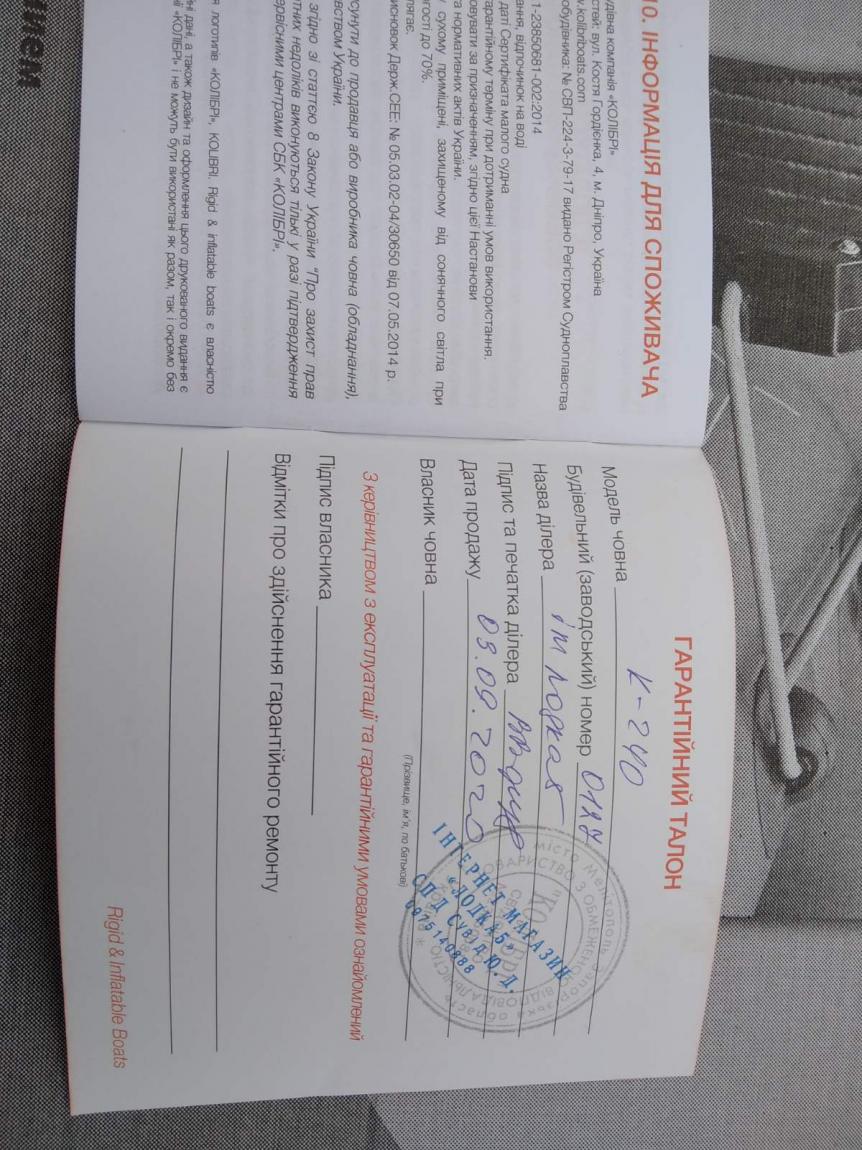 10. ІНФОРМАЦІЯ ДЛЯ СПОЖИВАЧА
компанія «КОЛІБРІ»
вул. Костя Гордієнка, 4, м. Дніпро, Україна
kolibriboats.com
№ СВП-224-3-79-17 видано Регістром Судноплавства
1-23850681-002:2014
відпочинок на воді
даті Сертифіката малого судна
гарантійному терміну при дотриманні умов використання.
за призначенням, згідно цієї Настанови
та нормативних актів України.
сухому приміщені, захищеному від сонячного світла при
до 70%.
Держ.СЕЕ: № 05.03.02-04/30650 від 07.05.2014 р.
до продавця або виробника човна (обладнання),
України.
згідно зі статтею 8 Закону України "Про захист прав
недоліків виконуються тількі у разі підтвердження
сервісними центрами СБК «КОЛІБРІ».
логотипів «КОЛІБРІ», KOLIBRI, Rigid & inflatable boats є власністю
дані, а також дизайн та оформлення цього друкованого видання є
«КОЛІБРІ» і не можуть бути використані як разом, так і окремо без
ГАРАНТІЙНИЙ ТАЛОН
Модель човна К-240
Будівельний (заводський) номер
Назва ділера ім лодка5
Підпис та печатка ділера
Дата продажу 03.09.2020
Власник човна
(Прізвище, ім'я, по батькові)
З керівництвом з експлуатації та гарантійними умовами ознайомлений
Підпис власника
Відмітки про здійснення гарантійного ремонту
Rigid & Inflatable Boats
ІНТЕРНЕТ МАГАЗИН
«ЛОДКА5»
СПД Сувід Ю.Д.
0975140888